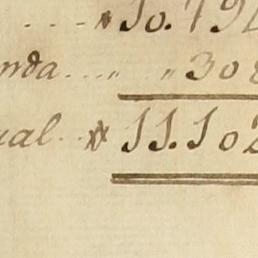 10.794
nda.... " " 308
ual... 11.102